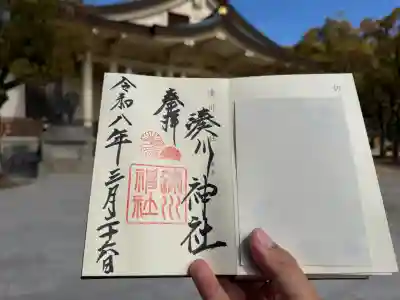 奉拝
湊川神社
令和八年三月二十六日
湊川
神社